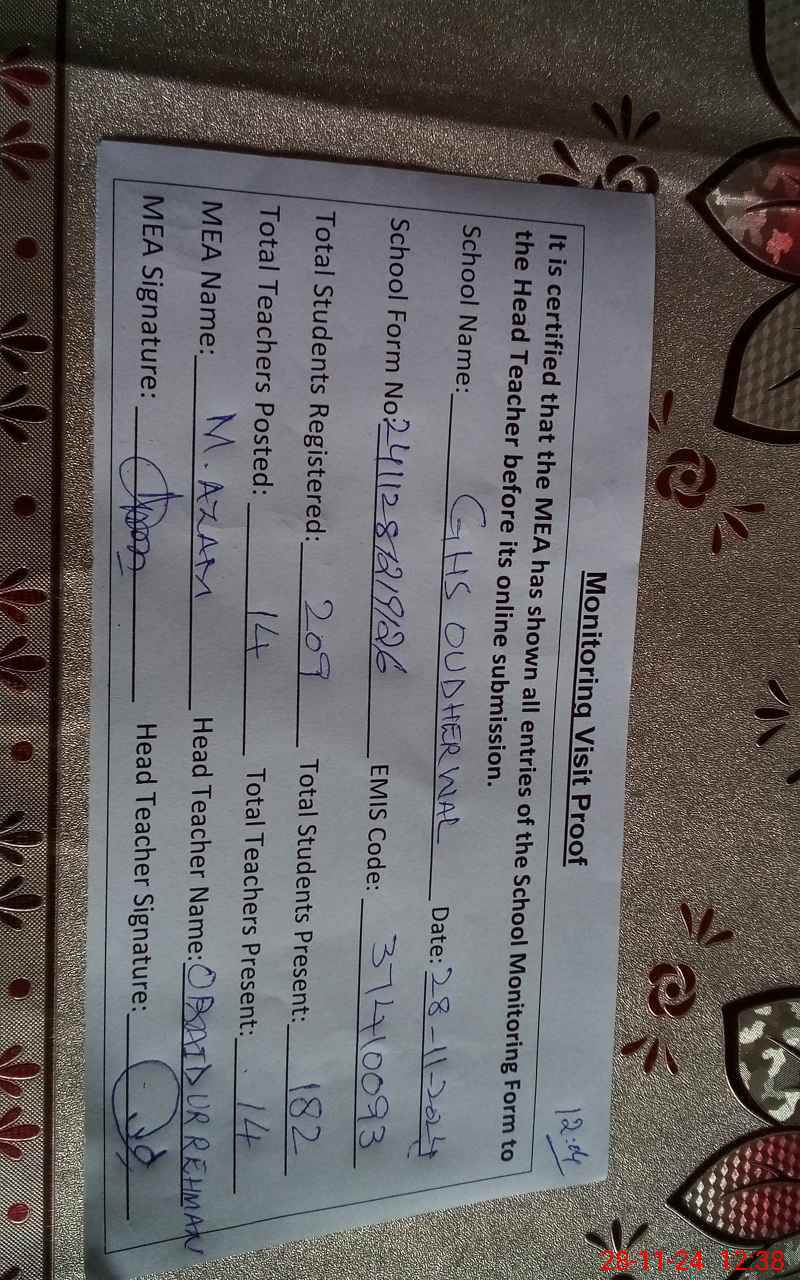 Monitoring Visit Proof
12:04
It is certified that the MEA has shown all entries of the School Monitoring Form to
the Head Teacher before its online submission.
School Name: GHS OUDHERWAL Date: 28-11-2024
School Form No: EMIS Code: 37410093
Total Students Registered: 209 Total Students Present: 182
Total Teachers Posted: 14 Total Teachers Present: 14
MEA Name: M. AZAM Head Teacher Name: OBAID UR REHMAN
MEA Signature: Head Teacher Signature:
28-11-24 12:38